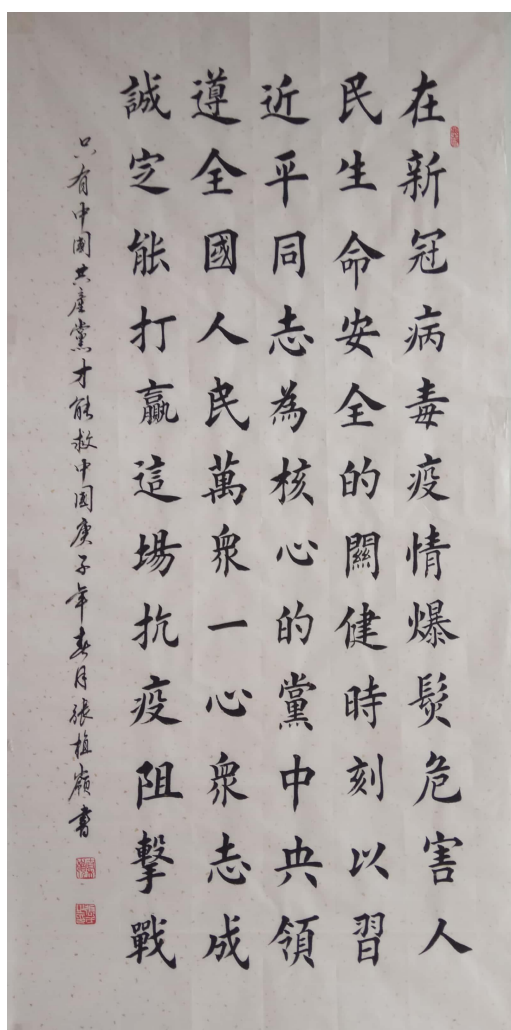 在新冠病毒疫情爆髮危害人
民生命安全的關健時刻以習
近平同志為核心的黨中央領
遵全國人民萬衆一心衆志成
誠定能打贏這場抗疫阻擊戰
只有中國共產黨才能救中国庚子年春月張植嶺書